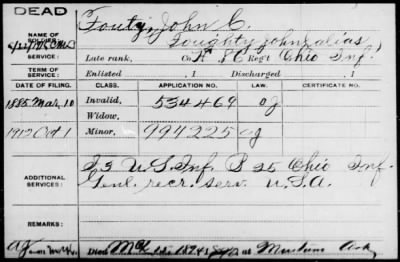 DEAD
NAME OF SOLDIER: Fouty, John C.
Doughty, John (alias)
SERVICE: Late rank, Co. Regt Ohio Inf.
TERM OF SERVICE: Enlisted , 1 Discharged , 1
DATE OF FILING. CLASS. APPLICATION NO. LAW. CERTIFICATE NO.
1885 Mar. 10 Invalid, 534469
Widow,
1912 Oct 1 Minor, 994225
ADDITIONAL SERVICES: I 3 U.S. Inf. B 25 Ohio Inf.
Genl. recr. serv. U.S.A.
REMARKS:
Died 1894 at Ark